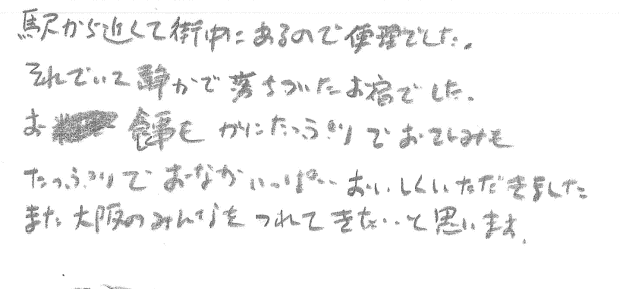 駅から近くて街中にあるので便理でした。
それでいて静かで落ちついたお宿でした。
お 食事も かにたっぷりで おでみも
たっぷりで おなかいっぱい おいしくいただきました
また大阪のみんなをつれてきたいと思います。